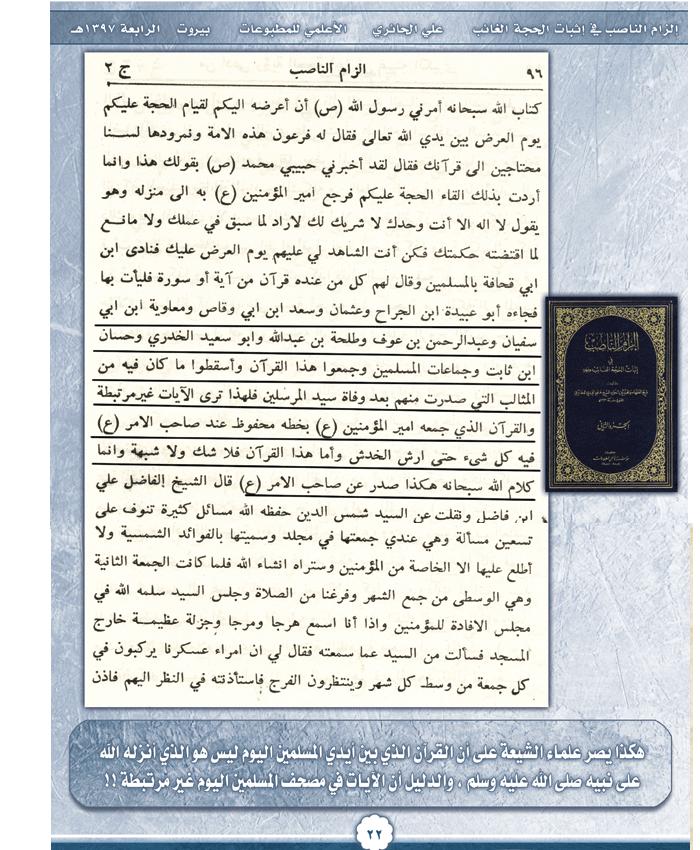 إلزام الناصب في إثبات الحجة الغائب علي الحائري الأعلمي للمطبوعات بيروت الرابعة ١٣٩٧هـ
٩٦ الزام الناصب ج ٢
كتاب الله سبحانه أمرني رسول الله (ص) أن أعرضه اليكم لقيام الحجة عليكم
يوم العرض بين يدي الله تعالى فقال له فرعون هذه الامة ونمرودها لسنا
محتاجين الى قرآنك فقال لقد أخبرني حبيبي محمد (ص) بقولك هذا وانما
أردت بذلك القاء الحجة عليكم فرجع امير المؤمنين (ع) به الى منزله وهو
يقول لا اله الا أنت وحدك لا شريك لك لاراد لما سبق في عملك ولا مانع
لما اقتضته حكمتك فكن أنت الشاهد لي عليهم يوم العرض عليك فنادى ابن
ابي قحافة بالمسلمين وقال لهم كل من عنده قرآن من آية أو سورة فليأت بها
فجاءه أبو عبيدة ابن الجراح وعثمان وسعد ابن ابي وقاص ومعاوية ابن ابي
سفيان وعبدالرحمن بن عوف وطلحة بن عبدالله وابو سعيد الخدري وحسان
ابن ثابت وجماعات المسلمين وجمعوا هذا القرآن وأسقطوا ما كان فيه من
المثالب التي صدرت منهم بعد وفاة سيد المرسلين فلهذا ترى الآيات غيرمرتبطة
والقرآن الذي جمعه امير المؤمنين (ع) بخطه محفوظ عند صاحب الامر (ع)
فيه كل شىء حتى ارش الخدش وأما هذا القرآن فلا شك ولا شبهة وانما
كلام الله سبحانه هكذا صدر عن صاحب الامر (ع) قال الشيخ الفاضل علي
ابن فاضل ونقلت عن السيد شمس الدين حفظه الله مسائل كثيرة تنوف على
تسعين مسألة وهي عندي جمعتها في مجلد وسميتها بالفوائد الشمسية ولا
أطلع عليها الا الخاصة من المؤمنين وستراه انشاء الله فلما كانت الجمعة الثانية
وهي الوسطى من جمع الشهر وفرغنا من الصلاة وجلس السيد سلمه الله في
مجلس الافادة للمؤمنين واذا أنا اسمع هرجا ومرجا وجزلة عظيمة خارج
المسجد فسألت من السيد عما سمعته فقال لي ان امراء عسكرنا يركبون في
كل جمعة من وسط كل شهر وينتظرون الفرج فاستأذنته في النظر اليهم فاذن
إلزام الناصب
في
إثبات الحجة الغائب
الجزء الثاني
هكذا يصر علماء الشيعة على أن القرآن الذي بين أيدي المسلمين اليوم ليس هو الذي أنزله الله
على نبيه صلى الله عليه وسلم ، والدليل أن الآيات في مصحف المسلمين اليوم غير مرتبطة !!
٢٢